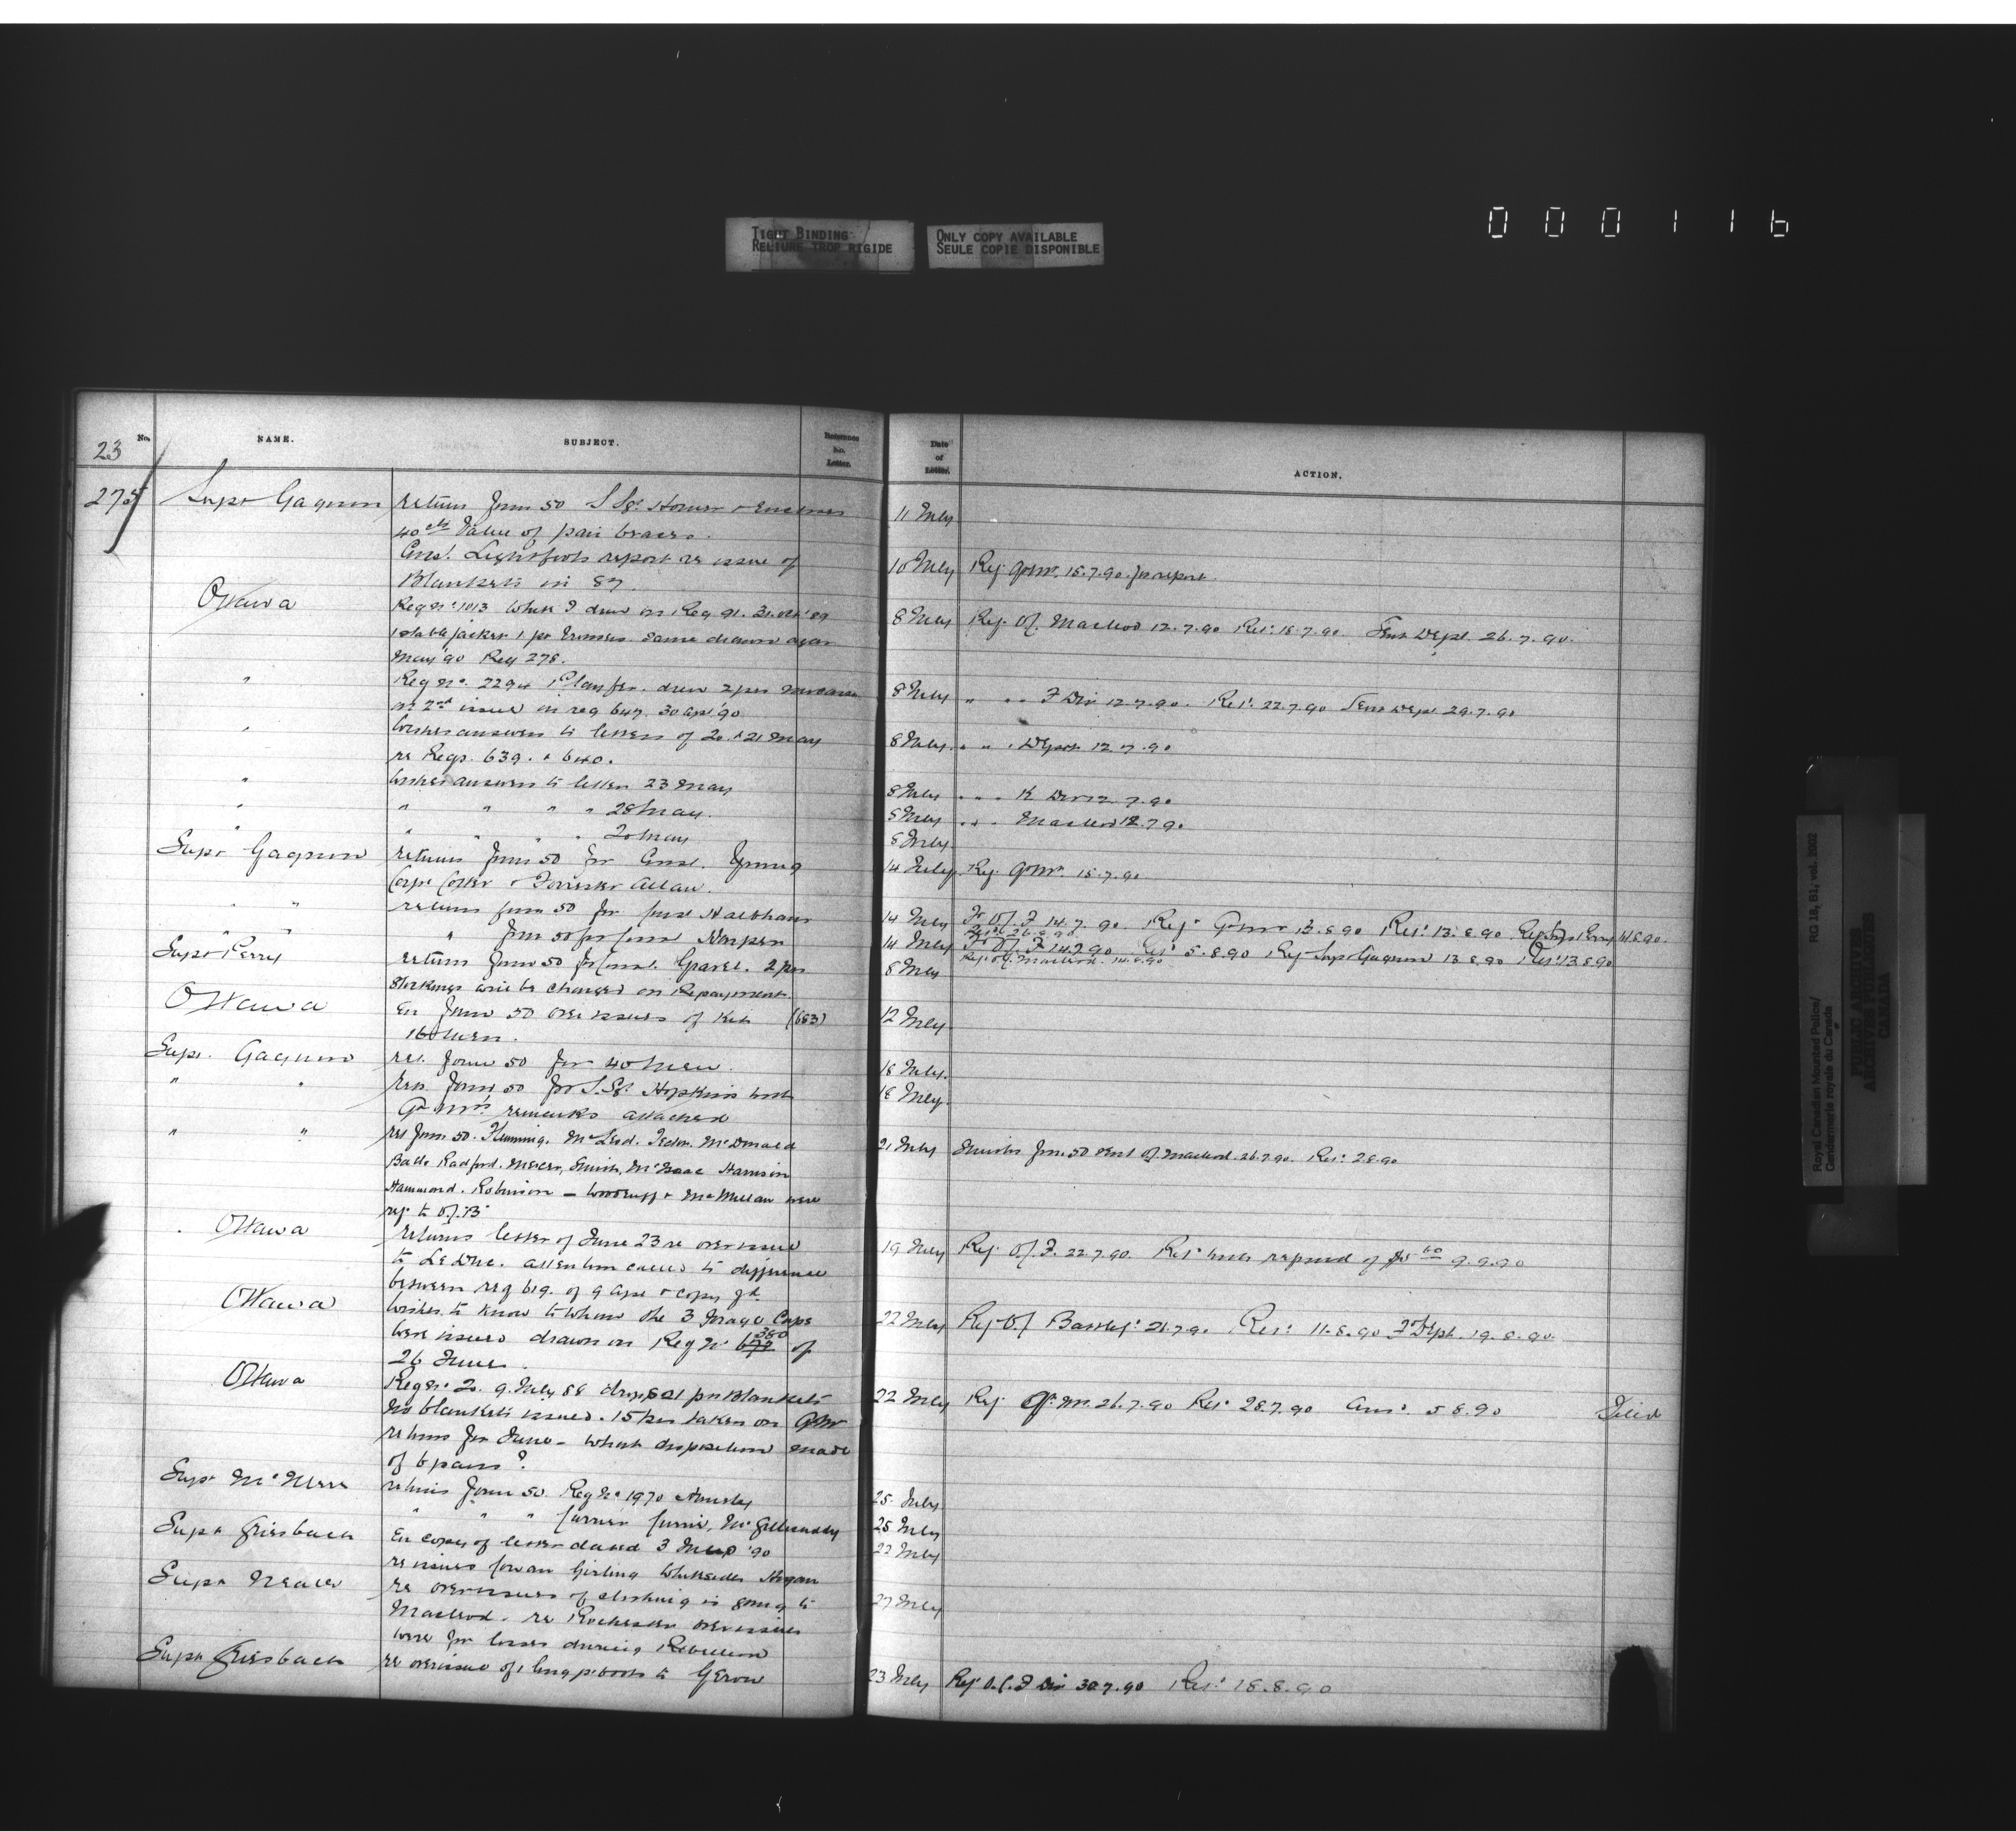 000116
TIGHT BINDING
RELIURE TROP RIGIDE
ONLY COPY AVAILABLE
SEULE COPIE DISPONIBLE
23
No. NAME. SUBJECT. Reference No. Letter. Date of Letter. ACTION.
275 Supt Gagnon return Form 50 S Sgt Horner + Encloses 11 July
40 cts Value of pair braces.
Const. Lightfoots report re issue of 10 July Ref. Qr Mr. 15.7.90 for report
Blankets in 87.
Ottawa Reg No 1013 drew on Req 91. 31. Oct '89 8 July Ref. O.C. Macleod 12.7.90 Ret. 18.7.90 Sent Dept. 26.7.90.
1 stable jacket 1 pr trousers same drawn again
May '90 Req 278.
" Reg No. 2294 drew 2 prs 8 July " " F Div 12.7.90. Ret. 22.7.90 Sent Dept 29.7.90
as 2nd issue on req 647. 30 Apl '90
" Wishes answers to letters of 20 + 21 May 8 July. " " Depot 12.7.90
re Reqs. 639. + 640.
" Wishes answers to letter 23 May 8 July " " K Div 12.7.90
" " " " " 28 May. 8 July " " Macleod 12.7.90
" " " " " 20 May 8 July.
Supt Gagnon returns Form 50 for Const. Young 14 July Ref. Qr Mr. 15.7.90
Corpl + Forrester Allan.
" " return form 50 for Const 14 July To O.C. F 14.7.90. Ref Qr Mr 13.8.90 Ret. 13.8.90 Supt Perry 14.8.90.
Ret. 26.8.90
" " " Form 50 for Const Harper 14 July To O.C. F 14.7.90 Ret. 5.8.90 Ref Supt Gagnon 13.8.90 Ret. 13.8.90
Ref. O.C. Macleod. 14.8.90
Supt Perry return Form 50 for Const. Gravel. 2 prs 8 July
Stockings will be charged on Repayment.
Ottawa En Form 50 over issues of Kit (683) 12 July
16 Men.
Supt. Gagnon ret. Form 50 for 40 Men. 18 July.
" " Ret. Form 50 for S. Sgt Hopkins with 18 July.
Qr Mr's remarks attached
" " ret Form 50. Flemming. McLeod. McDonald 21 July Smiths Form 50 sent O.C. Macleod. 26.7.90. Ret. 2.8.90
Radford. Mercer, Smith, McIsaac Harrison
Hammond. Robinson — Woodruff + McMillan were
ref. to O.C. "B"
Ottawa returns letter of June 23 re over issue 19 July Ref. O.C. F. 22.7.90. Ret. with 9.9.90
to LeDuc. attention called to difference
between req 619. of 9 Apl + copy
Ottawa Wishes to know to whom the 3 Forage Caps 22 July Ref O.C. Battleford 21.7.90 Ret. 11.8.90 To Dept. 19.8.90.
were issued drawn on Req No 380 of
26 June.
Ottawa Req No 20. 9. July 88 1 pr Blankets 22 July Ref. Qr. Mr. 26.7.90 Ret. 28.7.90 Ans. 5.8.90 Filed
No blankets issued. 15 prs taken on Qr Mr
returns for June — What disposition made
of 6 pairs?
Supt returns Form 50. Reg No 1970 25 July
" " " Currier Currie, 25 July
Supt Griesbach En copy of letter dated 3 '90 22 July
re issues Cowan Girling Whiteside Hogan
Supt Neale re overissues of clothing is going to 27 July
Macleod. re Rochester over issues
were for losses during Rebellion
Supt Griesbach re overissue of 1 long pr boots to Gerow 23 July Ref O.C. F Div 30.7.90 Ret. 18.8.90
RG 18, B1, vol. 2002
Royal Canadian Mounted Police/
Gendarmerie royale du Canada
PUBLIC ARCHIVES
ARCHIVES PUBLIQUES
CANADA